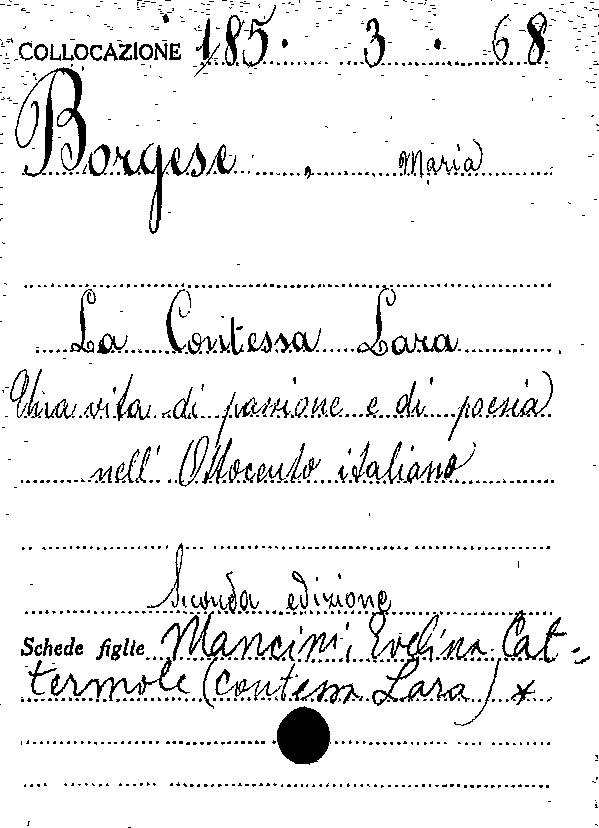 COLLOCAZIONE 185. 3. 68
Borgese, Maria
La Contessa Lara
Una vita di passione e di poesia
nell' Ottocento italiano
Seconda edizione
Schede figlie Mancini, Evelina Cat-
termole (contessa Lara) *